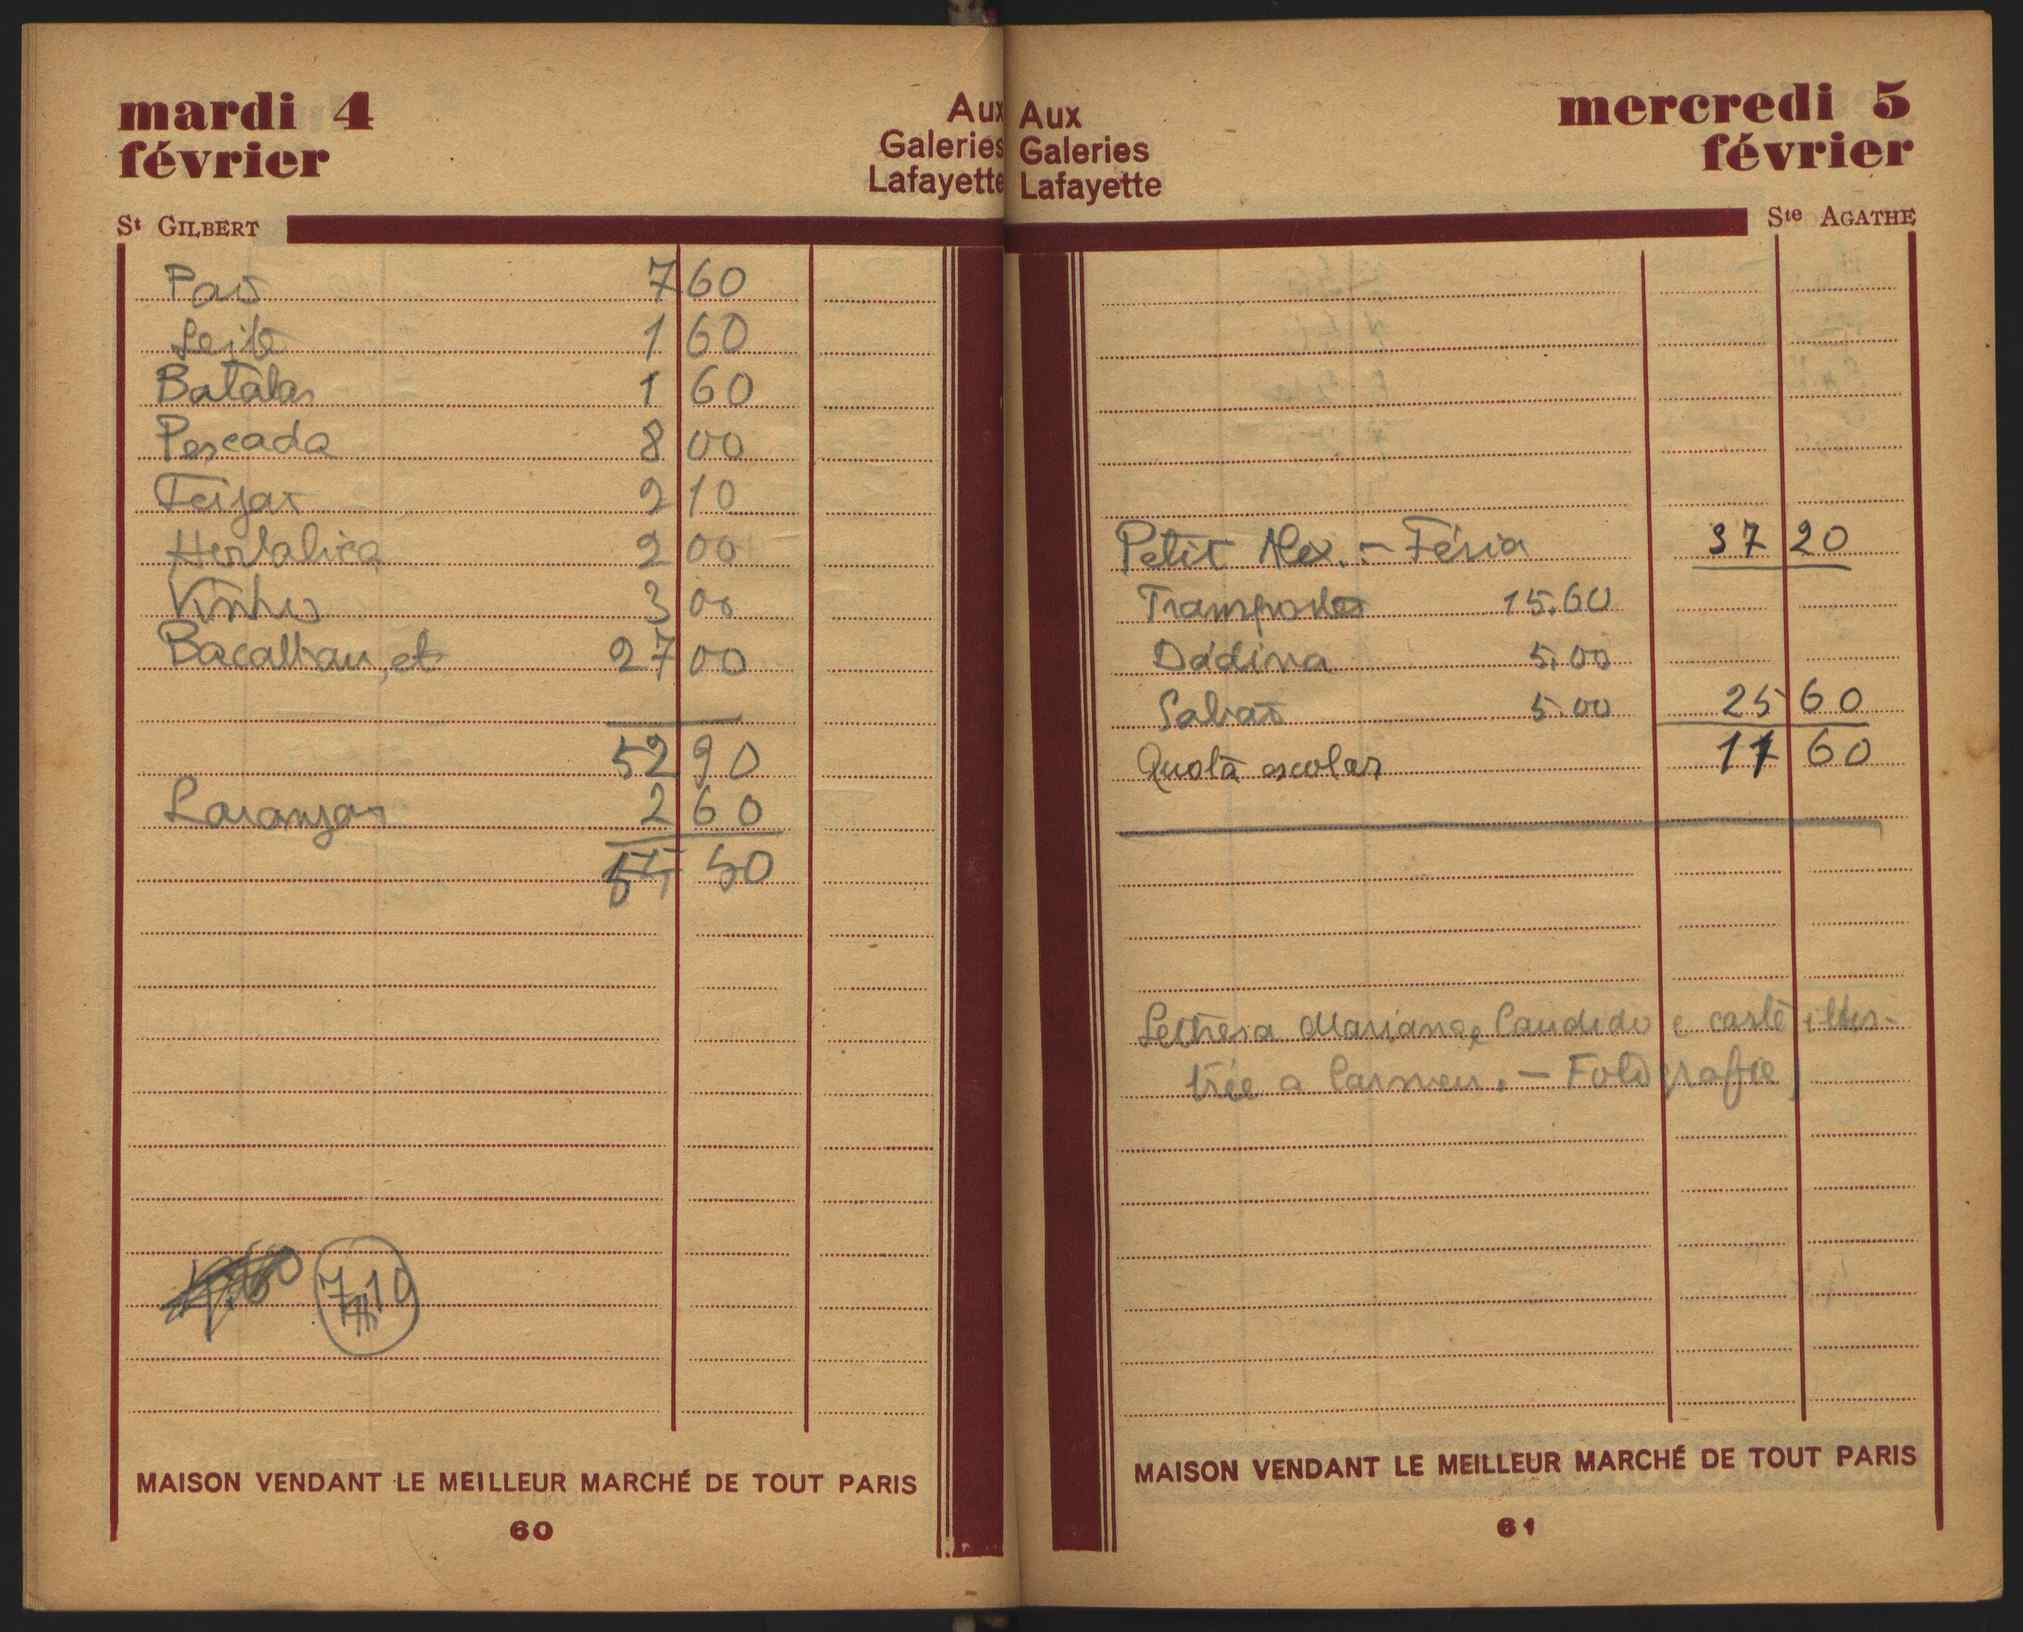 mardi 4
février
Aux
Galeries
Lafayette
St GILBERT
Pão 7 60
Leite 1 60
Batatas 1 60
Pescada 8 00
Feijão 2 10
Hortaliça 2 00
Vinho 3 00
Bacalhau, etc 27 00
52 90
Laranjas 2 60
50
7,10
MAISON VENDANT LE MEILLEUR MARCHÉ DE TOUT PARIS
60
Aux
Galeries
Lafayette
mercredi 5
février
Ste AGATHE
Petit Alex. - Féria 37 20
Transportes 15.60
Dádiva 5.00
Sabão 5.00 25 60
Quota escolar 11 60
Mariana e Candido e carte illus-
trée a Carmen. - Fotografie
MAISON VENDANT LE MEILLEUR MARCHÉ DE TOUT PARIS
61